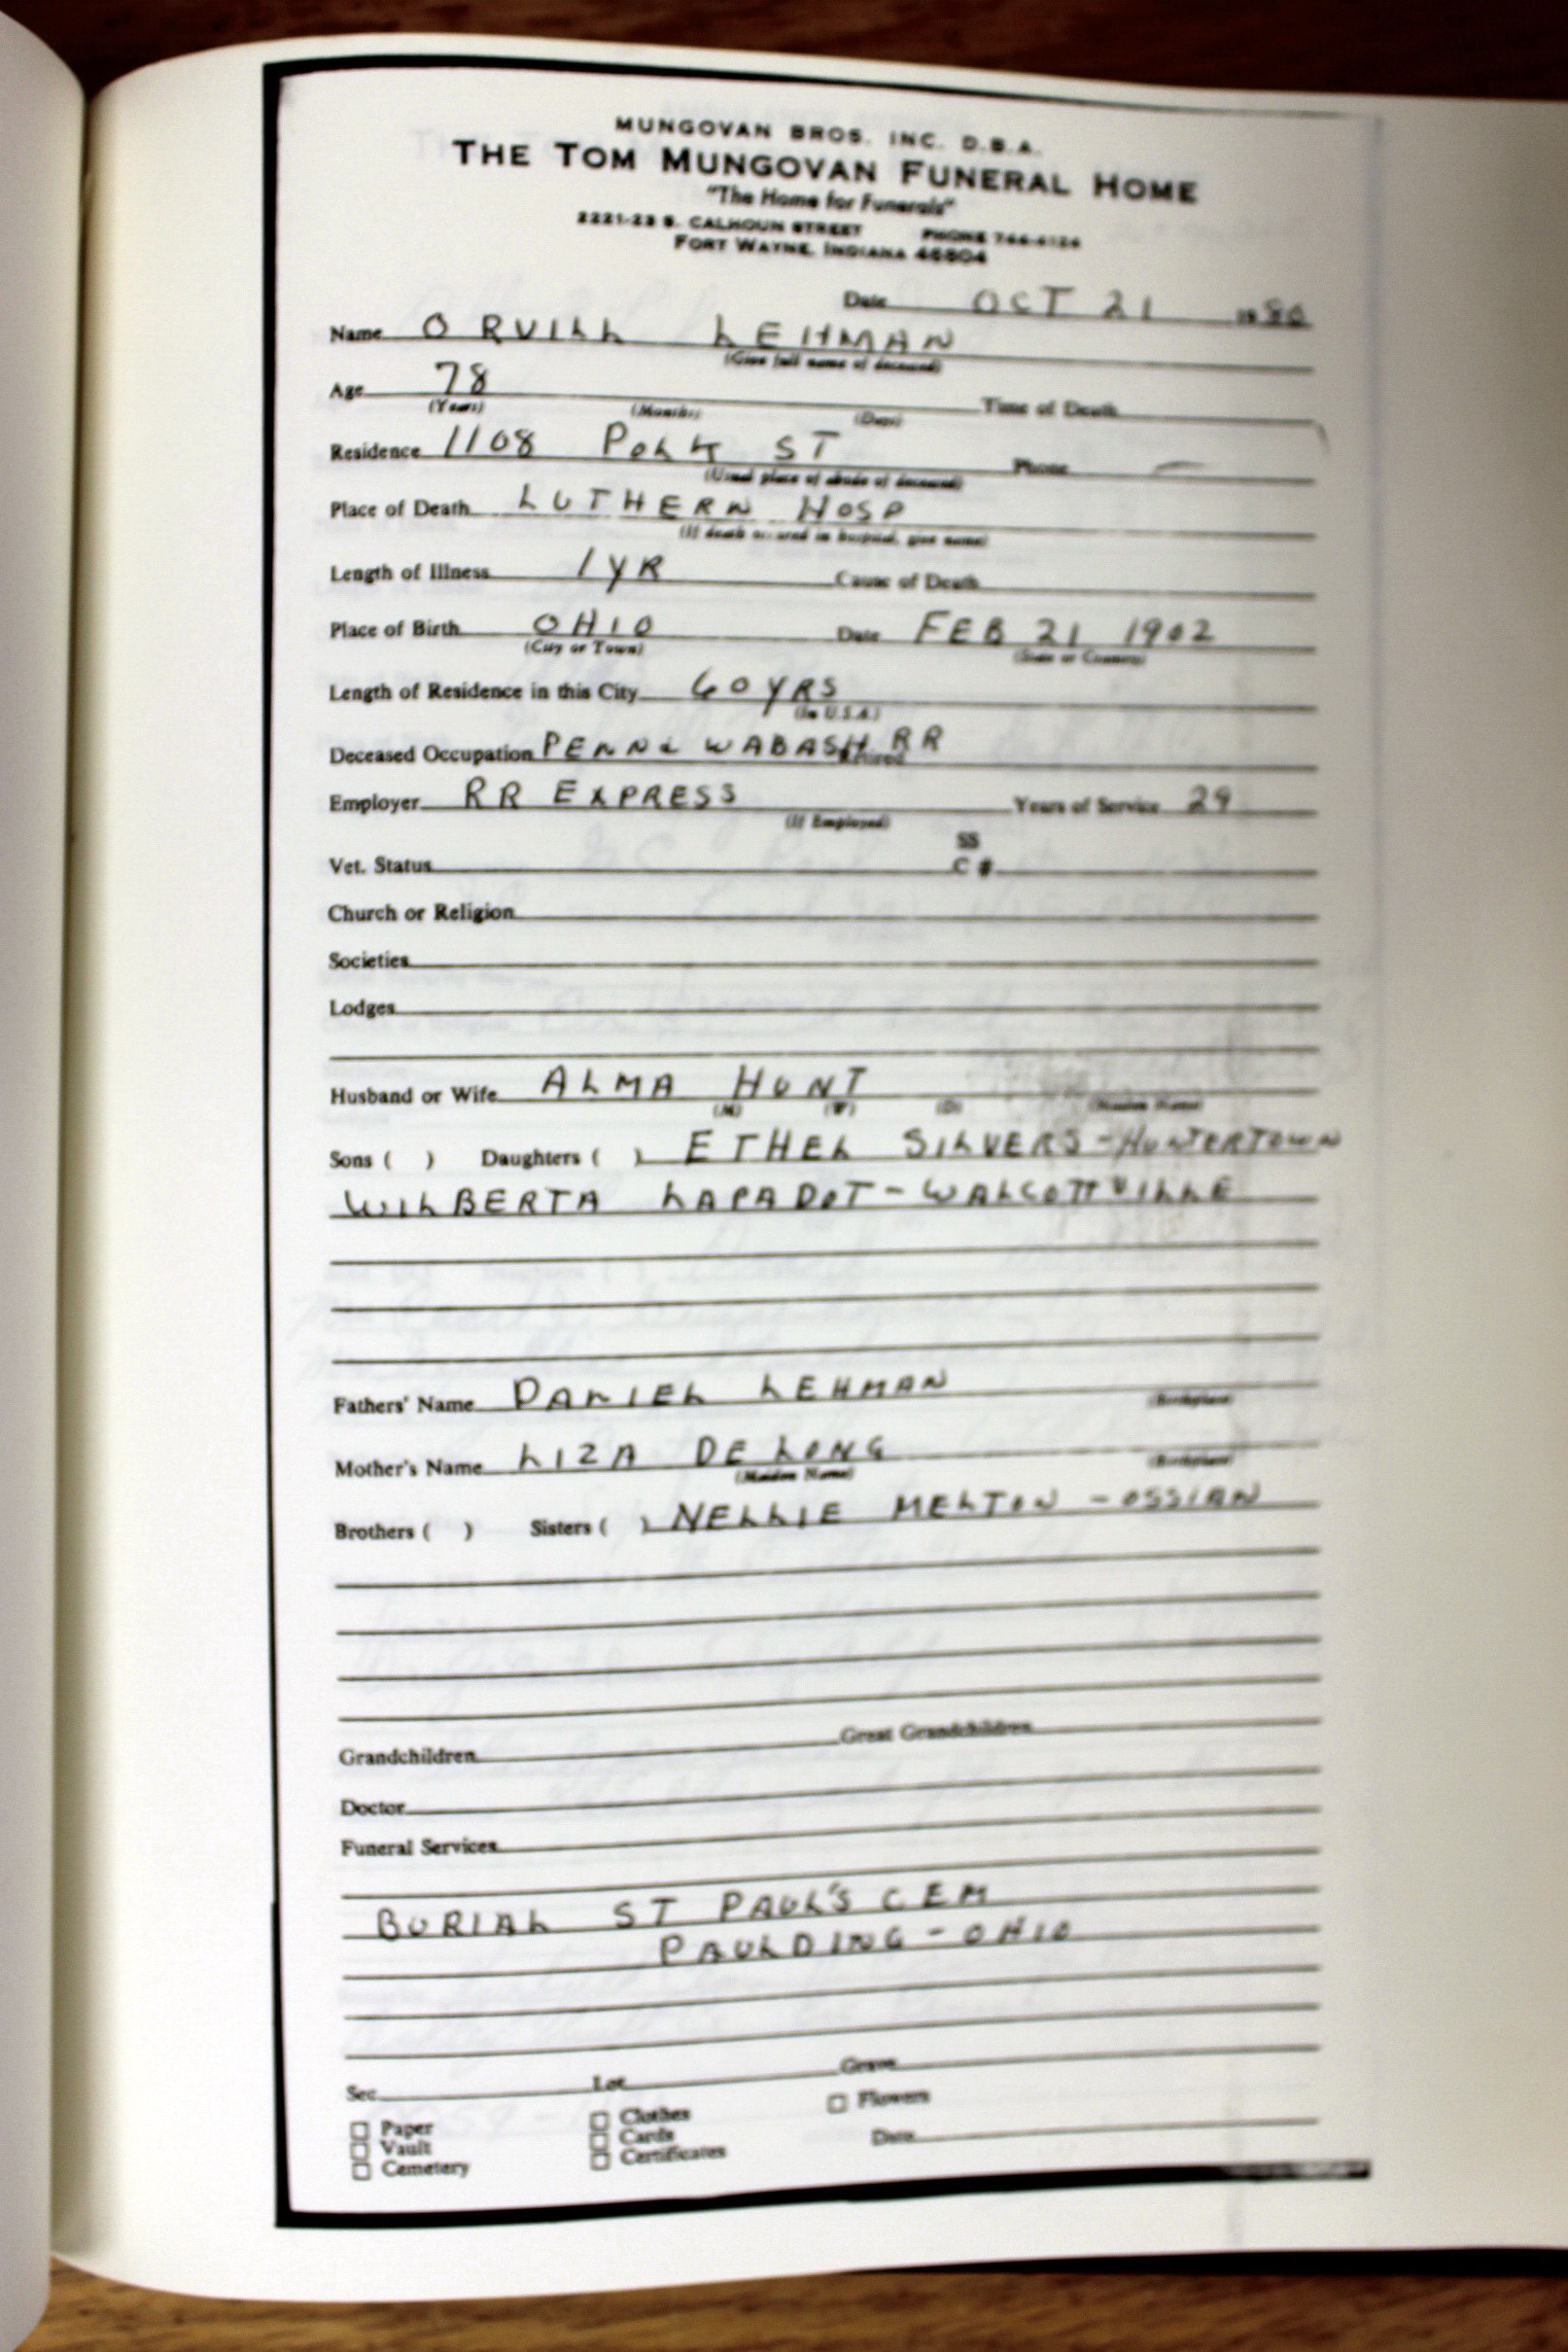 MUNGOVAN BROS. INC. D.B.A.
THE TOM MUNGOVAN FUNERAL HOME
"The Home for Funerals"
2221-23 S. CALHOUN STREET PHONE 744-4124
FORT WAYNE, INDIANA 46804
Date OCT 21 1980
Name ORVILL LEHMAN
(Give full name of deceased)
Age 78 Time of Death
(Years) (Months) (Days)
Residence 1108 POLK ST Phone —
(Usual place of abode of deceased)
Place of Death LUTHERN HOSP
(If death occured in hospital, give name)
Length of Illness 1 YR Cause of Death
Place of Birth OHIO Date FEB 21 1902
(City or Town) (State or Country)
Length of Residence in this City 60 YRS
(In U.S.A)
Deceased Occupation PENN & WABASH RR
Retired
Employer RR EXPRESS Years of Service 29
(If Employed)
SS
Vet. Status C #
Church or Religion
Societies
Lodges
Husband or Wife ALMA HUNT
(M) (W) (D) (Maiden Name)
Sons ( ) Daughters ( ) ETHEL SILVERS - HUNTERTOWN
WILBERTA LAPADOT - WALCOTTVILLE
Fathers' Name DANIEL LEHMAN
(Birthplace)
Mother's Name LIZA DELONG
(Maiden Name) (Birthplace)
Brothers ( ) Sisters ( ) NELLIE MELTON - OSSIAN
Grandchildren Great Grandchildren
Doctor
Funeral Services
BURIAL ST PAUL'S CEM
PAULDING - OHIO
Sec. Lot Grave
Paper Clothes Flowers
Vault Cards Date
Cemetery Certificates